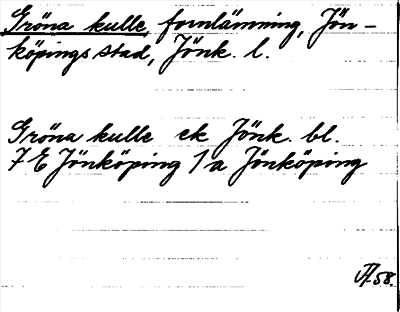 Gröna kulle, fornlämning, Jön-
köpings stad, Jönk. l.
Gröna kulle ek Jönk. bl.
7 E Jönköping 1 a Jönköping
58.